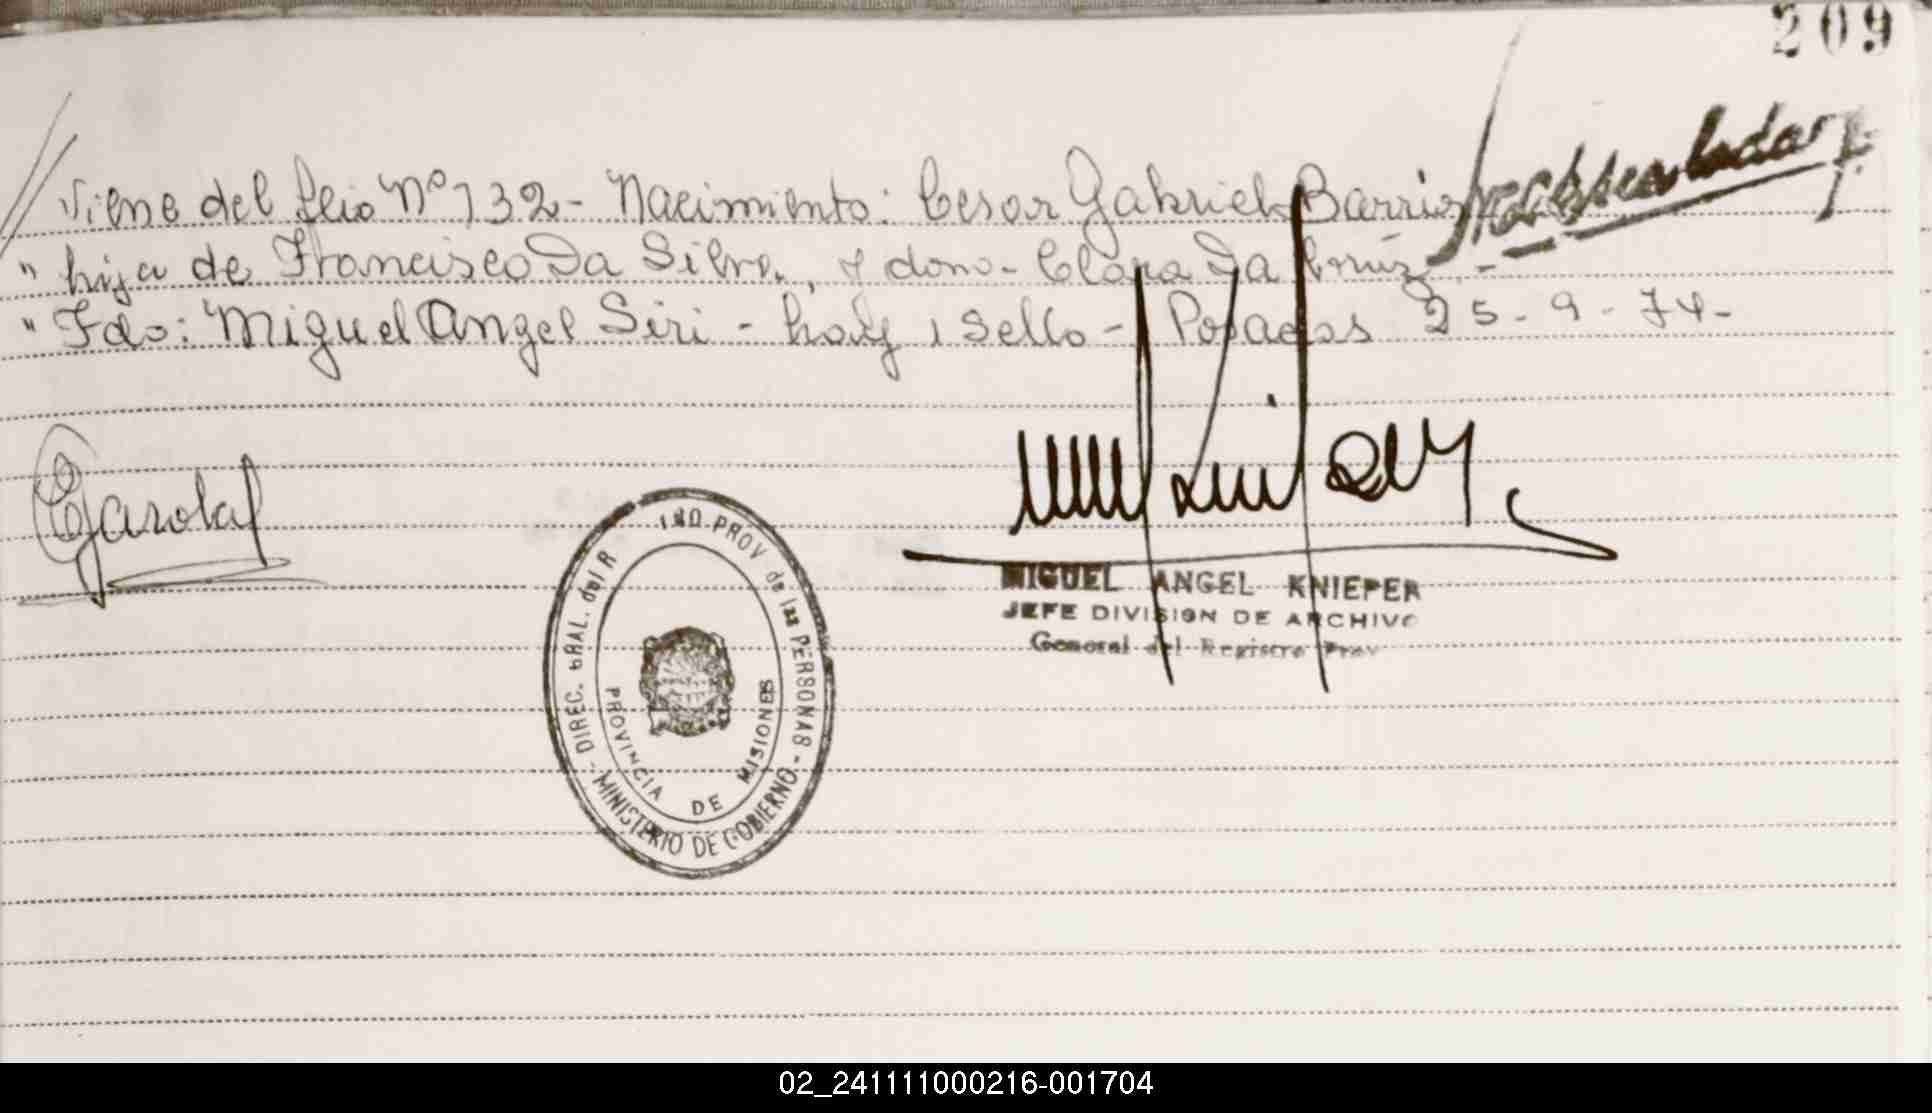 209
Viene del flio Nº 132 - Nacimiento: Cesar Gabriel Barrios
" hija de Francisco Da Silva, y dona - Clara Da Cruz -
" Fdo: Miguel Angel Siri - hay 1 Sello - Posadas 25-9-74-
MIGUEL ANGEL KNIEPER
JEFE DIVISION DE ARCHIVO
General del Registro Prov
DIREC. GRAL. del R PROV de las PERSONAS
- MINISTERIO DE GOBIERNO -
PROVINCIA DE MISIONES
02_241111000216-001704